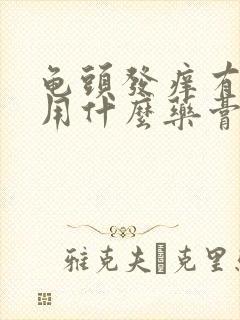 龟頭發痒有
用什麼藥膏
雅克夫·克里